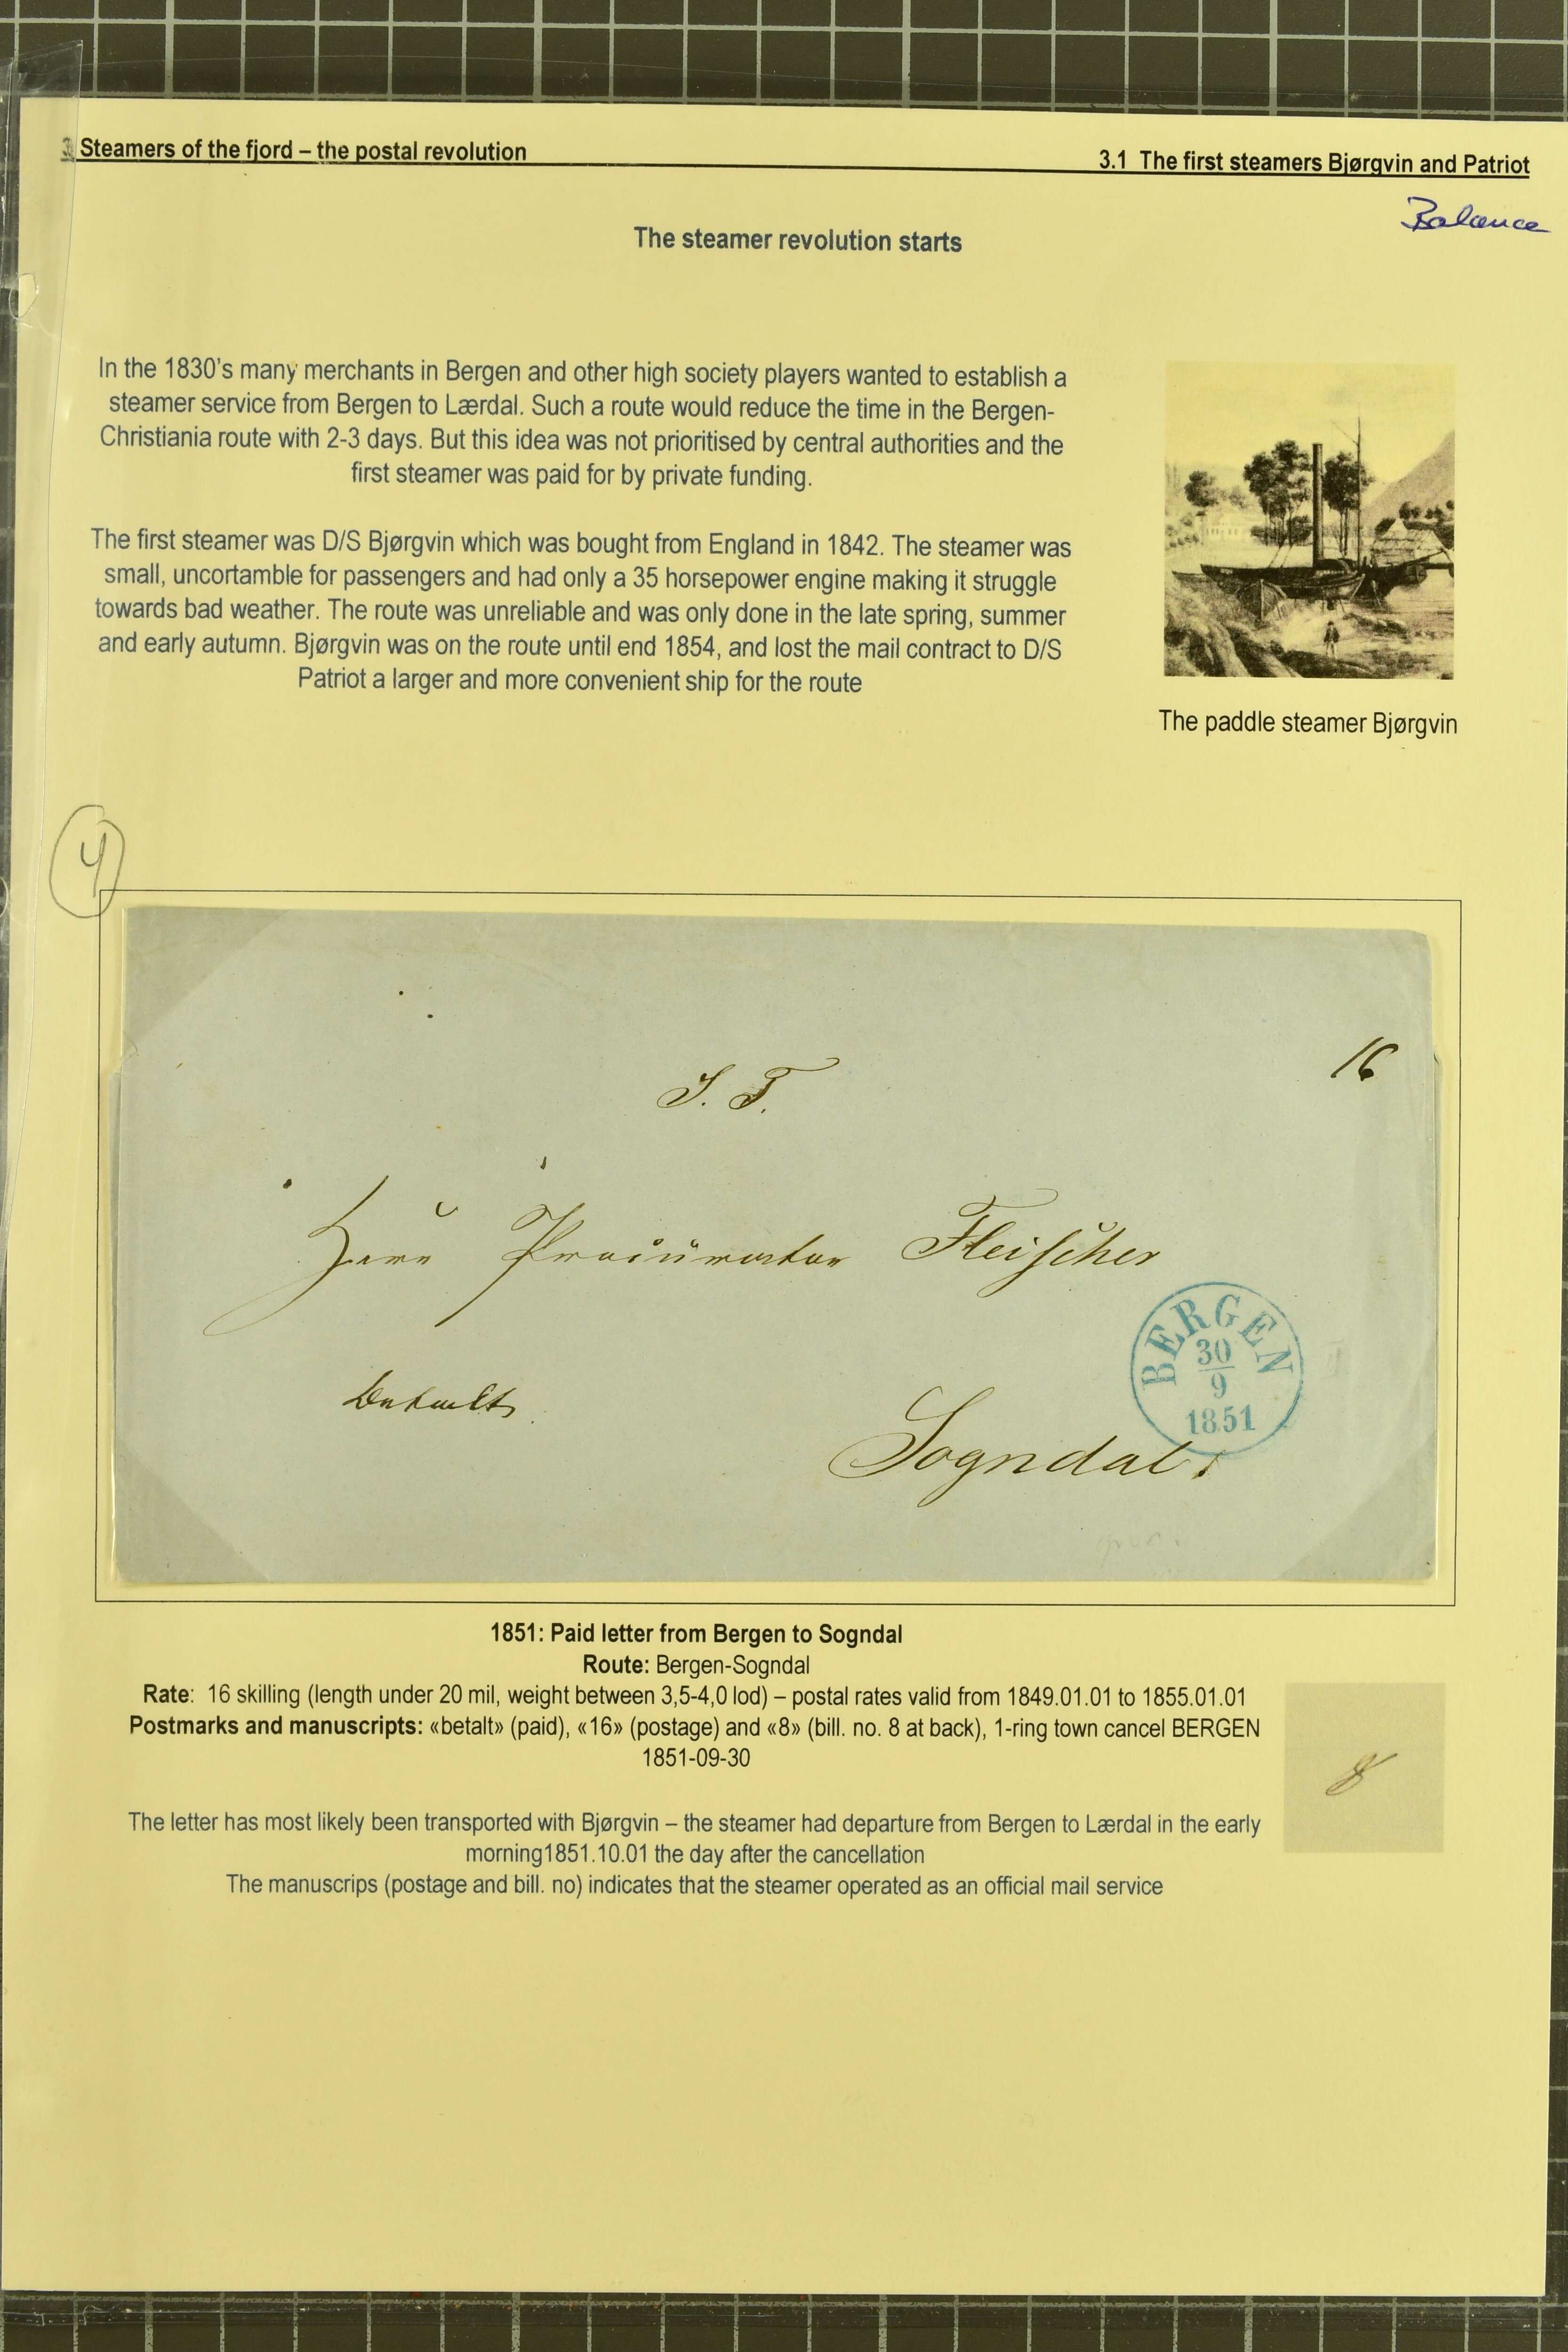 3 Steamers of the fjord – the postal revolution
3.1 The first steamers Bjørgvin and Patriot
Balance
The steamer revolution starts
In the 1830's many merchants in Bergen and other high society players wanted to establish a
steamer service from Bergen to Lærdal. Such a route would reduce the time in the Bergen-
Christiania route with 2-3 days. But this idea was not prioritised by central authorities and the
first steamer was paid for by private funding.
The first steamer was D/S Bjørgvin which was bought from England in 1842. The steamer was
small, uncortamble for passengers and had only a 35 horsepower engine making it struggle
towards bad weather. The route was unreliable and was only done in the late spring, summer
and early autumn. Bjørgvin was on the route until end 1854, and lost the mail contract to D/S
Patriot a larger and more convenient ship for the route
The paddle steamer Bjørgvin
4
16
S. T.
Herr Procurator Fleischer
BERGEN
30
9
1851
Betalt
Sogndal.
1851: Paid letter from Bergen to Sogndal
Route: Bergen-Sogndal
Rate: 16 skilling (length under 20 mil, weight between 3,5-4,0 lod) – postal rates valid from 1849.01.01 to 1855.01.01
Postmarks and manuscripts: «betalt» (paid), «16» (postage) and «8» (bill. no. 8 at back), 1-ring town cancel BERGEN
1851-09-30
8
The letter has most likely been transported with Bjørgvin – the steamer had departure from Bergen to Lærdal in the early
morning1851.10.01 the day after the cancellation
The manuscrips (postage and bill. no) indicates that the steamer operated as an official mail service